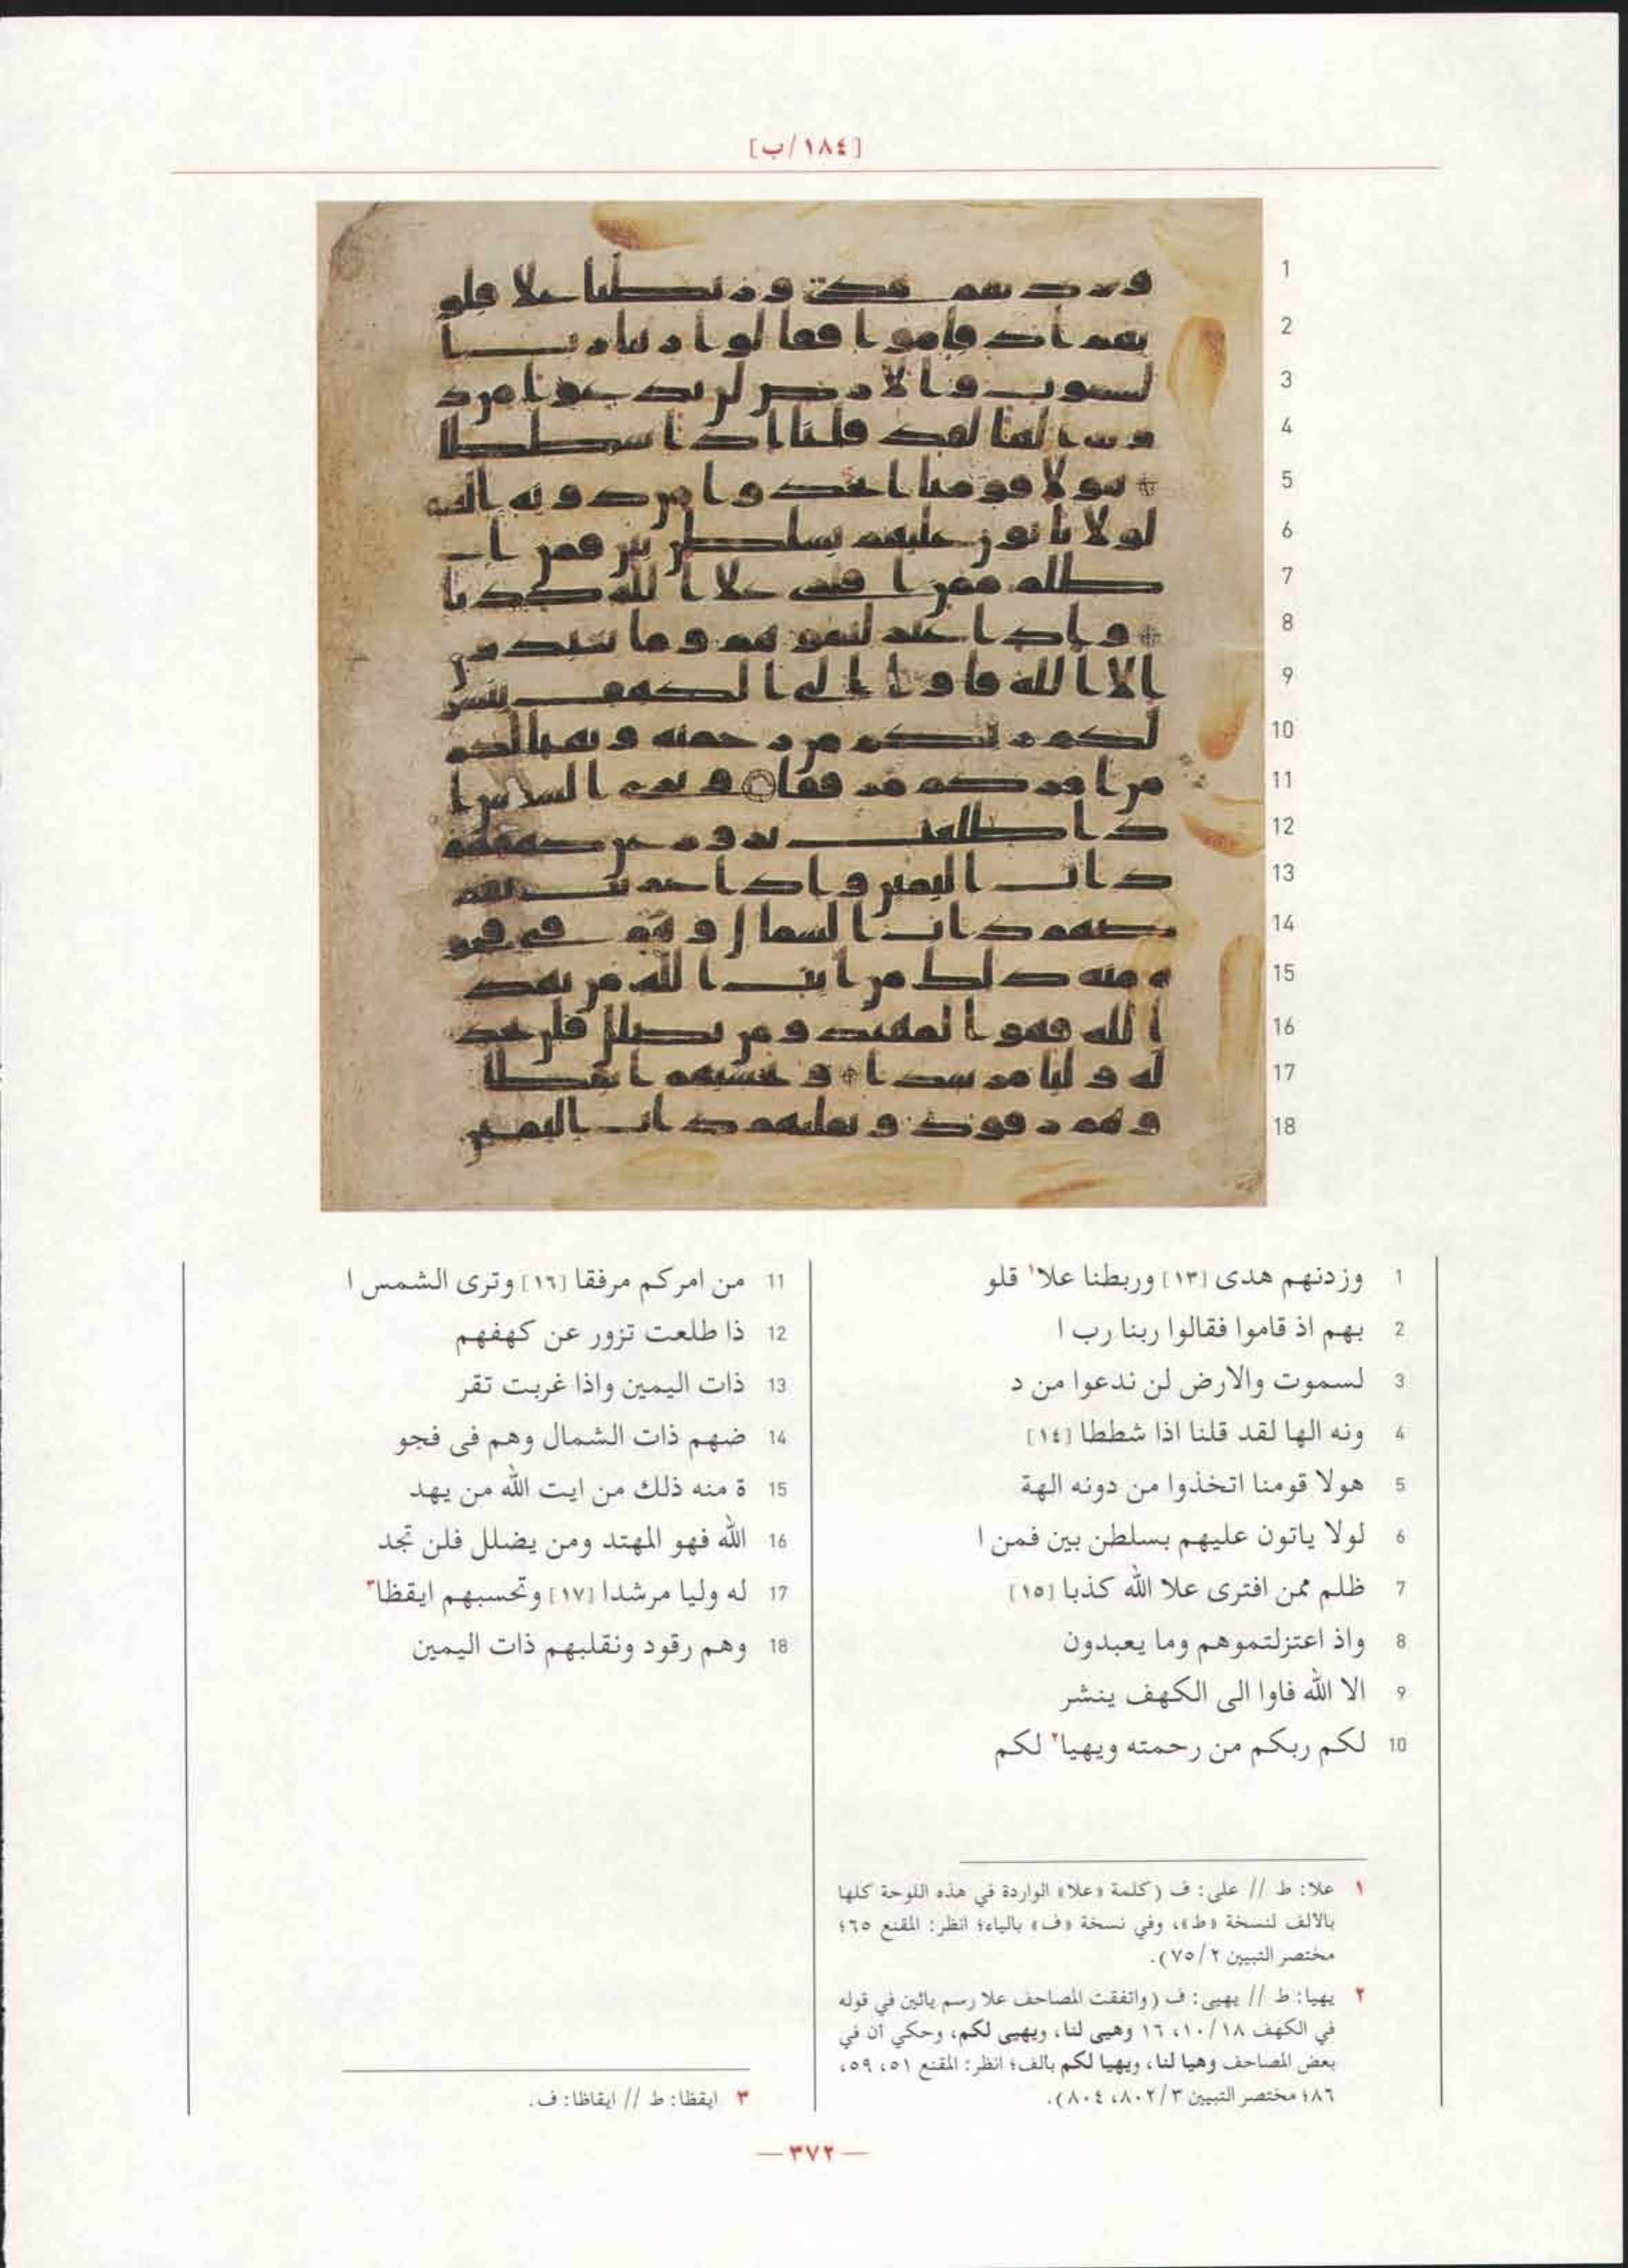 [١٨٤/ب]
1 وزدنهم هدى [١٣] وربطنا علا١ قلو
2 بهم اذ قاموا فقالوا ربنا رب ا
3 لسموت والارض لن ندعوا من د
4 ونه الها لقد قلنا اذا شططا [١٤]
5 هولا قومنا اتخذوا من دونه الهة
6 لولا ياتون عليهم بسلطن بين فمن ا
7 ظلم ممن افترى علا الله كذبا [١٥]
8 واذ اعتزلتموهم وما يعبدون
9 الا الله فاوا الى الكهف ينشر
10 لكم ربكم من رحمته ويهيا٢ لكم
11 من امركم مرفقا [١٦] وترى الشمس ا
12 ذا طلعت تزور عن كهفهم
13 ذات اليمين واذا غربت تقر
14 ضهم ذات الشمال وهم فى فجو
15 ة منه ذلك من ايت الله من يهد
16 الله فهو المهتد ومن يضلل فلن تجد
17 له وليا مرشدا [١٧] وتحسبهم ايقظا٣
18 وهم رقود ونقلبهم ذات اليمين
١ علا: ط // على: ف (كلمة «علا» الواردة في هذه اللوحة كلها
بالالف لنسخة «ط»، وفي نسخة «ف» بالياء؛ انظر: المقنع ٦٥؛
مختصر التبيين ٧٥/٢).
٢ يهيا: ط // يهيى: ف (واتفقت المصاحف علا رسم يائين في قوله
في الكهف ١٠/١٨، ١٦ وهيى لنا، ويهيى لكم، وحكي ان في
بعض المصاحف وهيا لنا، ويهيا لكم بالف؛ انظر: المقنع ٥١، ٥٩،
٨٦؛ مختصر التبيين ٨٠٢/٣، ٨٠٤).
٣ ايقظا: ط // ايقاظا: ف.
— ٣٧٢ —